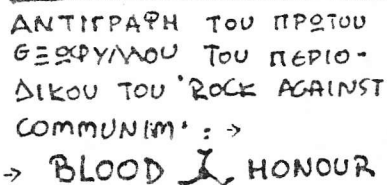 ΑΝΤΙΓΡΑΦΗ ΤΟΥ ΠΡΩΤΟΥ
ΕΞΩΦΥΛΛΟΥ ΤΟΥ ΠΕΡΙΟ-
ΔΙΚΟΥ ΤΟΥ 'ROCK AGAINST
COMMUNIM' : →
→ BLOOD & HONOUR